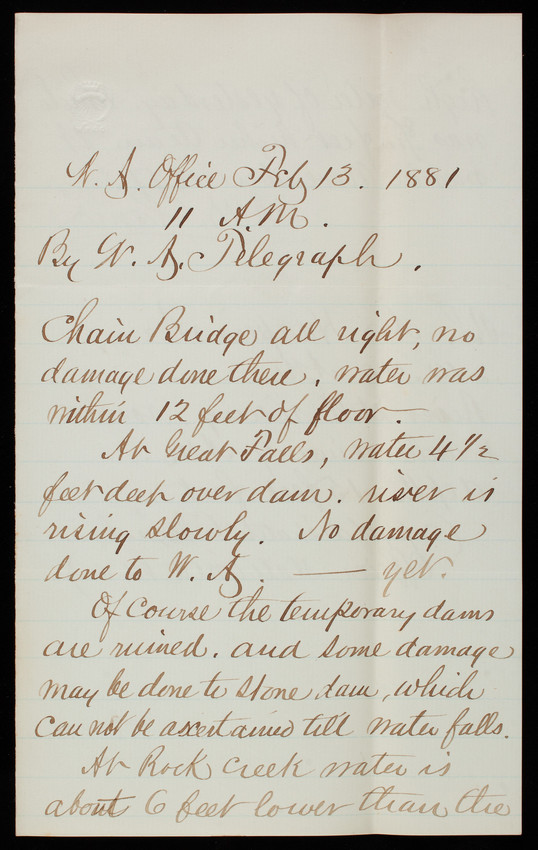 W. A. Office Feb 13. 1881
11 A.M.
By W. A. Telegraph.
Chain Bridge all right, no
damage done there, water was
within 12 feet of floor.
At Great Falls, water 4 1/2
feet deep over dam. river is
rising slowly. No damage
done to W. A. — yet.
Of course the temporary dams
are ruined. and some damage
may be done to stone dam, which
can not be ascertained till water falls.
At Rock creek water is
about 6 feet lower than the